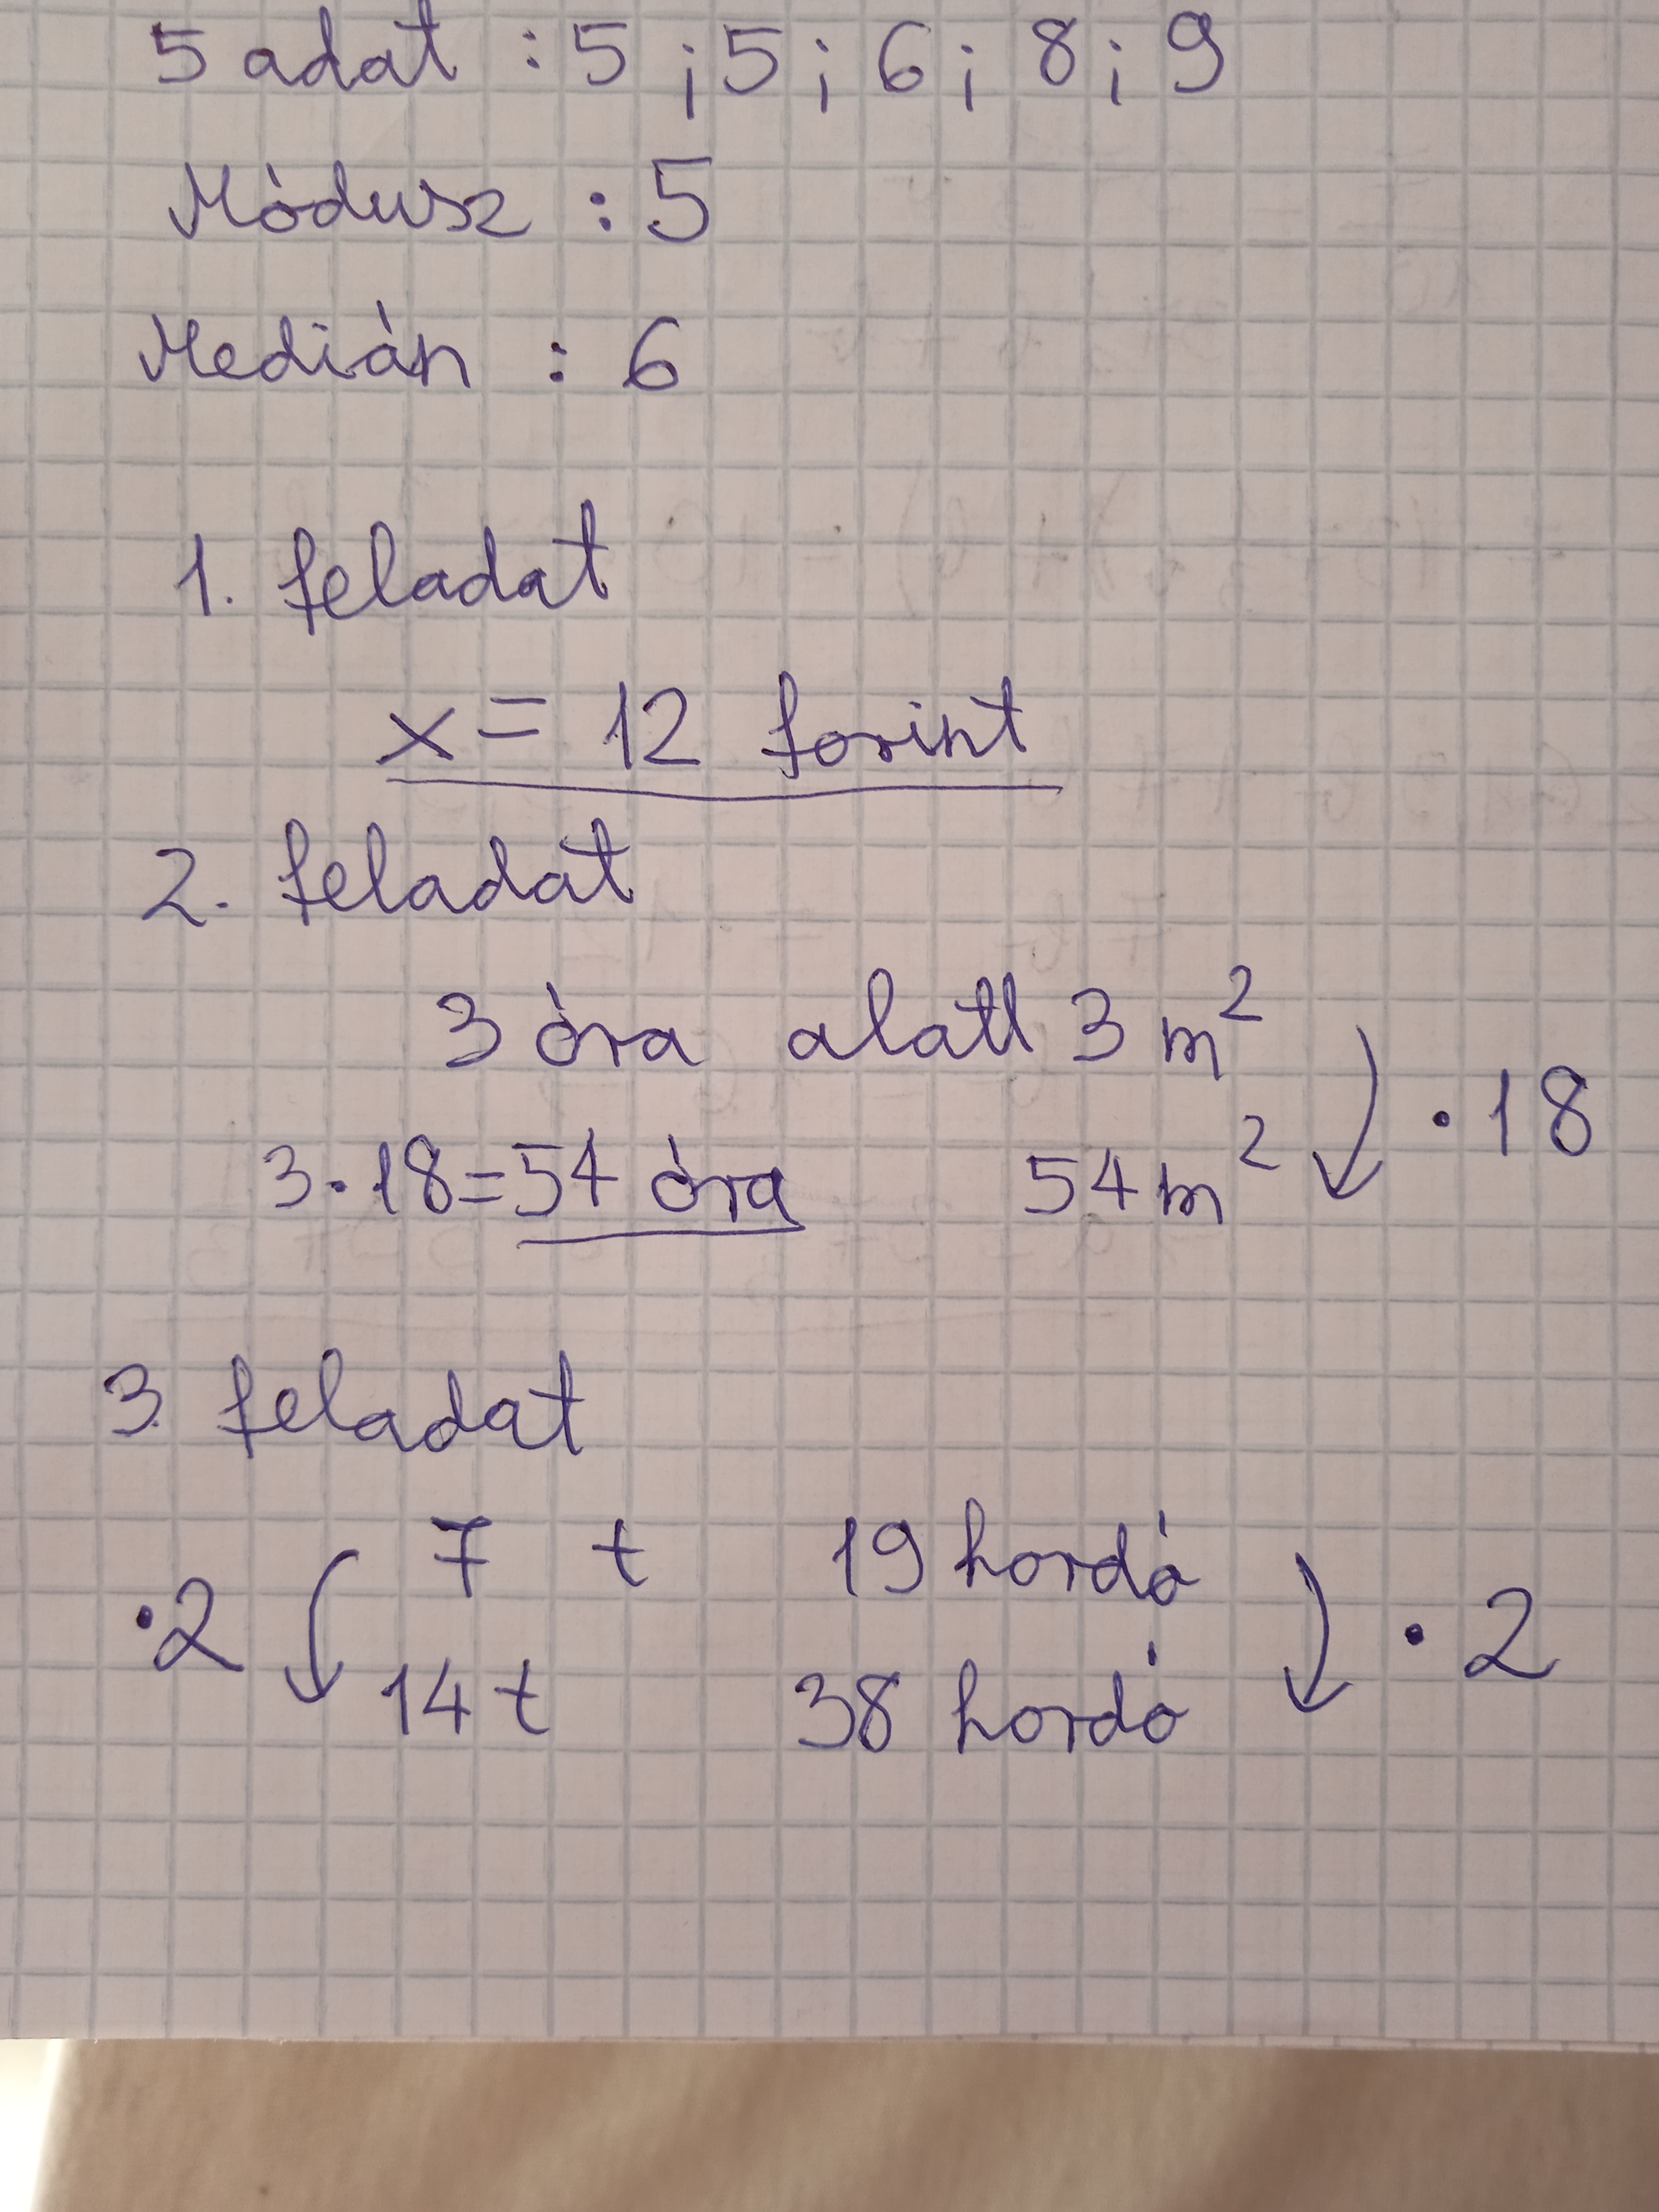 5 adat : 5 ; 5 ; 6 ; 8 ; 9
Módusz : 5
Medián : 6
1. feladat
x = 12 forint
2. feladat
3 óra alatt 3 m²
3·18=54 óra 54 m² ·18
3. feladat
7 t 19 hordó
·2 ·2
14 t 38 hordó